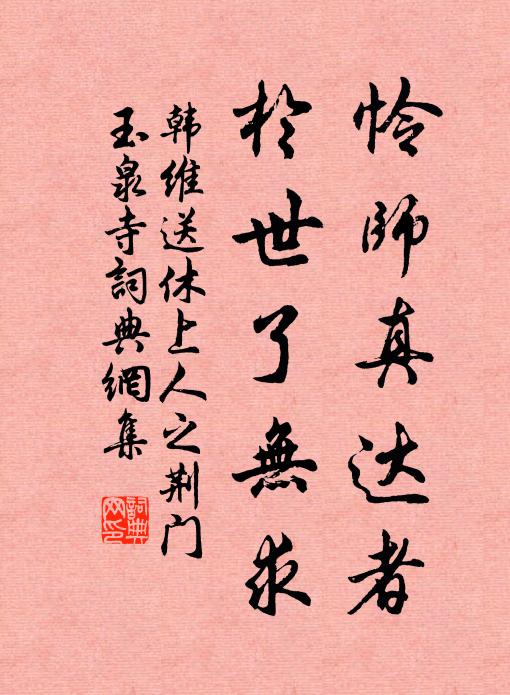 怜師真达者
於世了無求
韩维送休上人之荆门
玉泉寺詞典網集
詞典
网印